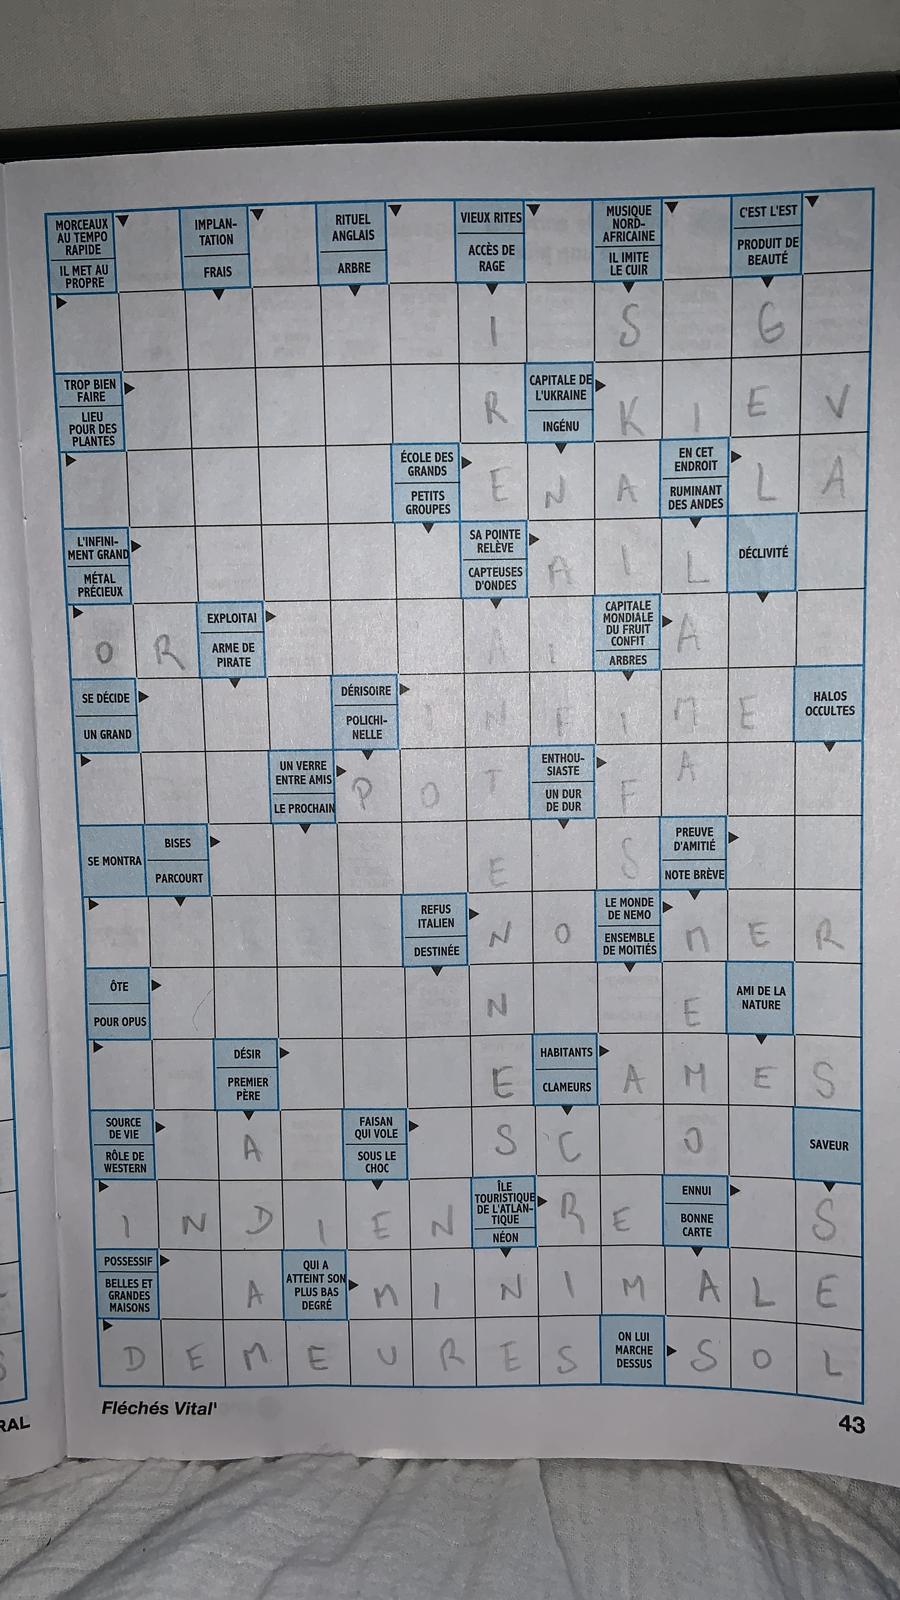 MORCEAUX AU TEMPO RAPIDE
IL MET AU PROPRE
IMPLAN-TATION
FRAIS
RITUEL ANGLAIS
ARBRE
VIEUX RITES
ACCÈS DE RAGE
MUSIQUE NORD-AFRICAINE
IL IMITE LE CUIR
C'EST L'EST
PRODUIT DE BEAUTÉ
I S G
TROP BIEN FAIRE
LIEU POUR DES PLANTES
R
CAPITALE DE L'UKRAINE
INGÉNU
K I E V
ÉCOLE DES GRANDS
PETITS GROUPES
E N A
EN CET ENDROIT
RUMINANT DES ANDES
L A
L'INFINI-MENT GRAND
MÉTAL PRÉCIEUX
SA POINTE RELÈVE
CAPTEUSES D'ONDES
A I L
DÉCLIVITÉ
O R
EXPLOITAI
ARME DE PIRATE
A I
CAPITALE MONDIALE DU FRUIT CONFIT
ARBRES
A
SE DÉCIDE
UN GRAND
DÉRISOIRE
POLICHI-NELLE
I N F I M E
HALOS OCCULTES
UN VERRE ENTRE AMIS
LE PROCHAIN
P O T
ENTHOU-SIASTE
UN DUR DE DUR
F A
SE MONTRA
BISES
PARCOURT
E S
PREUVE D'AMITIÉ
NOTE BRÈVE
REFUS ITALIEN
DESTINÉE
N O
LE MONDE DE NEMO
ENSEMBLE DE MOITIÉS
M E R
ÔTE
POUR OPUS
N E
AMI DE LA NATURE
DÉSIR
PREMIER PÈRE
E
HABITANTS
CLAMEURS
A M E S
SOURCE DE VIE
RÔLE DE WESTERN
A
FAISAN QUI VOLE
SOUS LE CHOC
S C O
SAVEUR
I N D I E N
ÎLE TOURISTIQUE DE L'ATLAN-TIQUE
NÉON
R E
ENNUI
BONNE CARTE
S
POSSESSIF
BELLES ET GRANDES MAISONS
A
QUI A ATTEINT SON PLUS BAS DEGRÉ
M I N I M A L E
D E M E U R E S
ON LUI MARCHE DESSUS
S O L
Fléchés Vital'
43
RAL